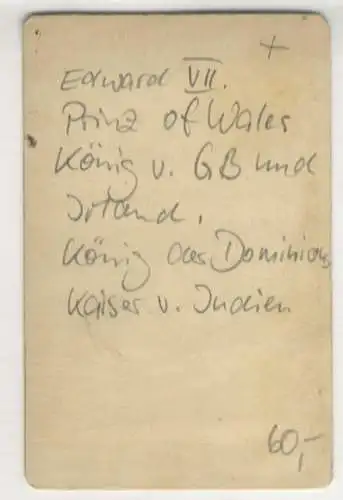 +
Edward VII.
Prinz of Wales
König v. GB und
Irland,
König der Dominions
Kaiser v. Indien
60,-